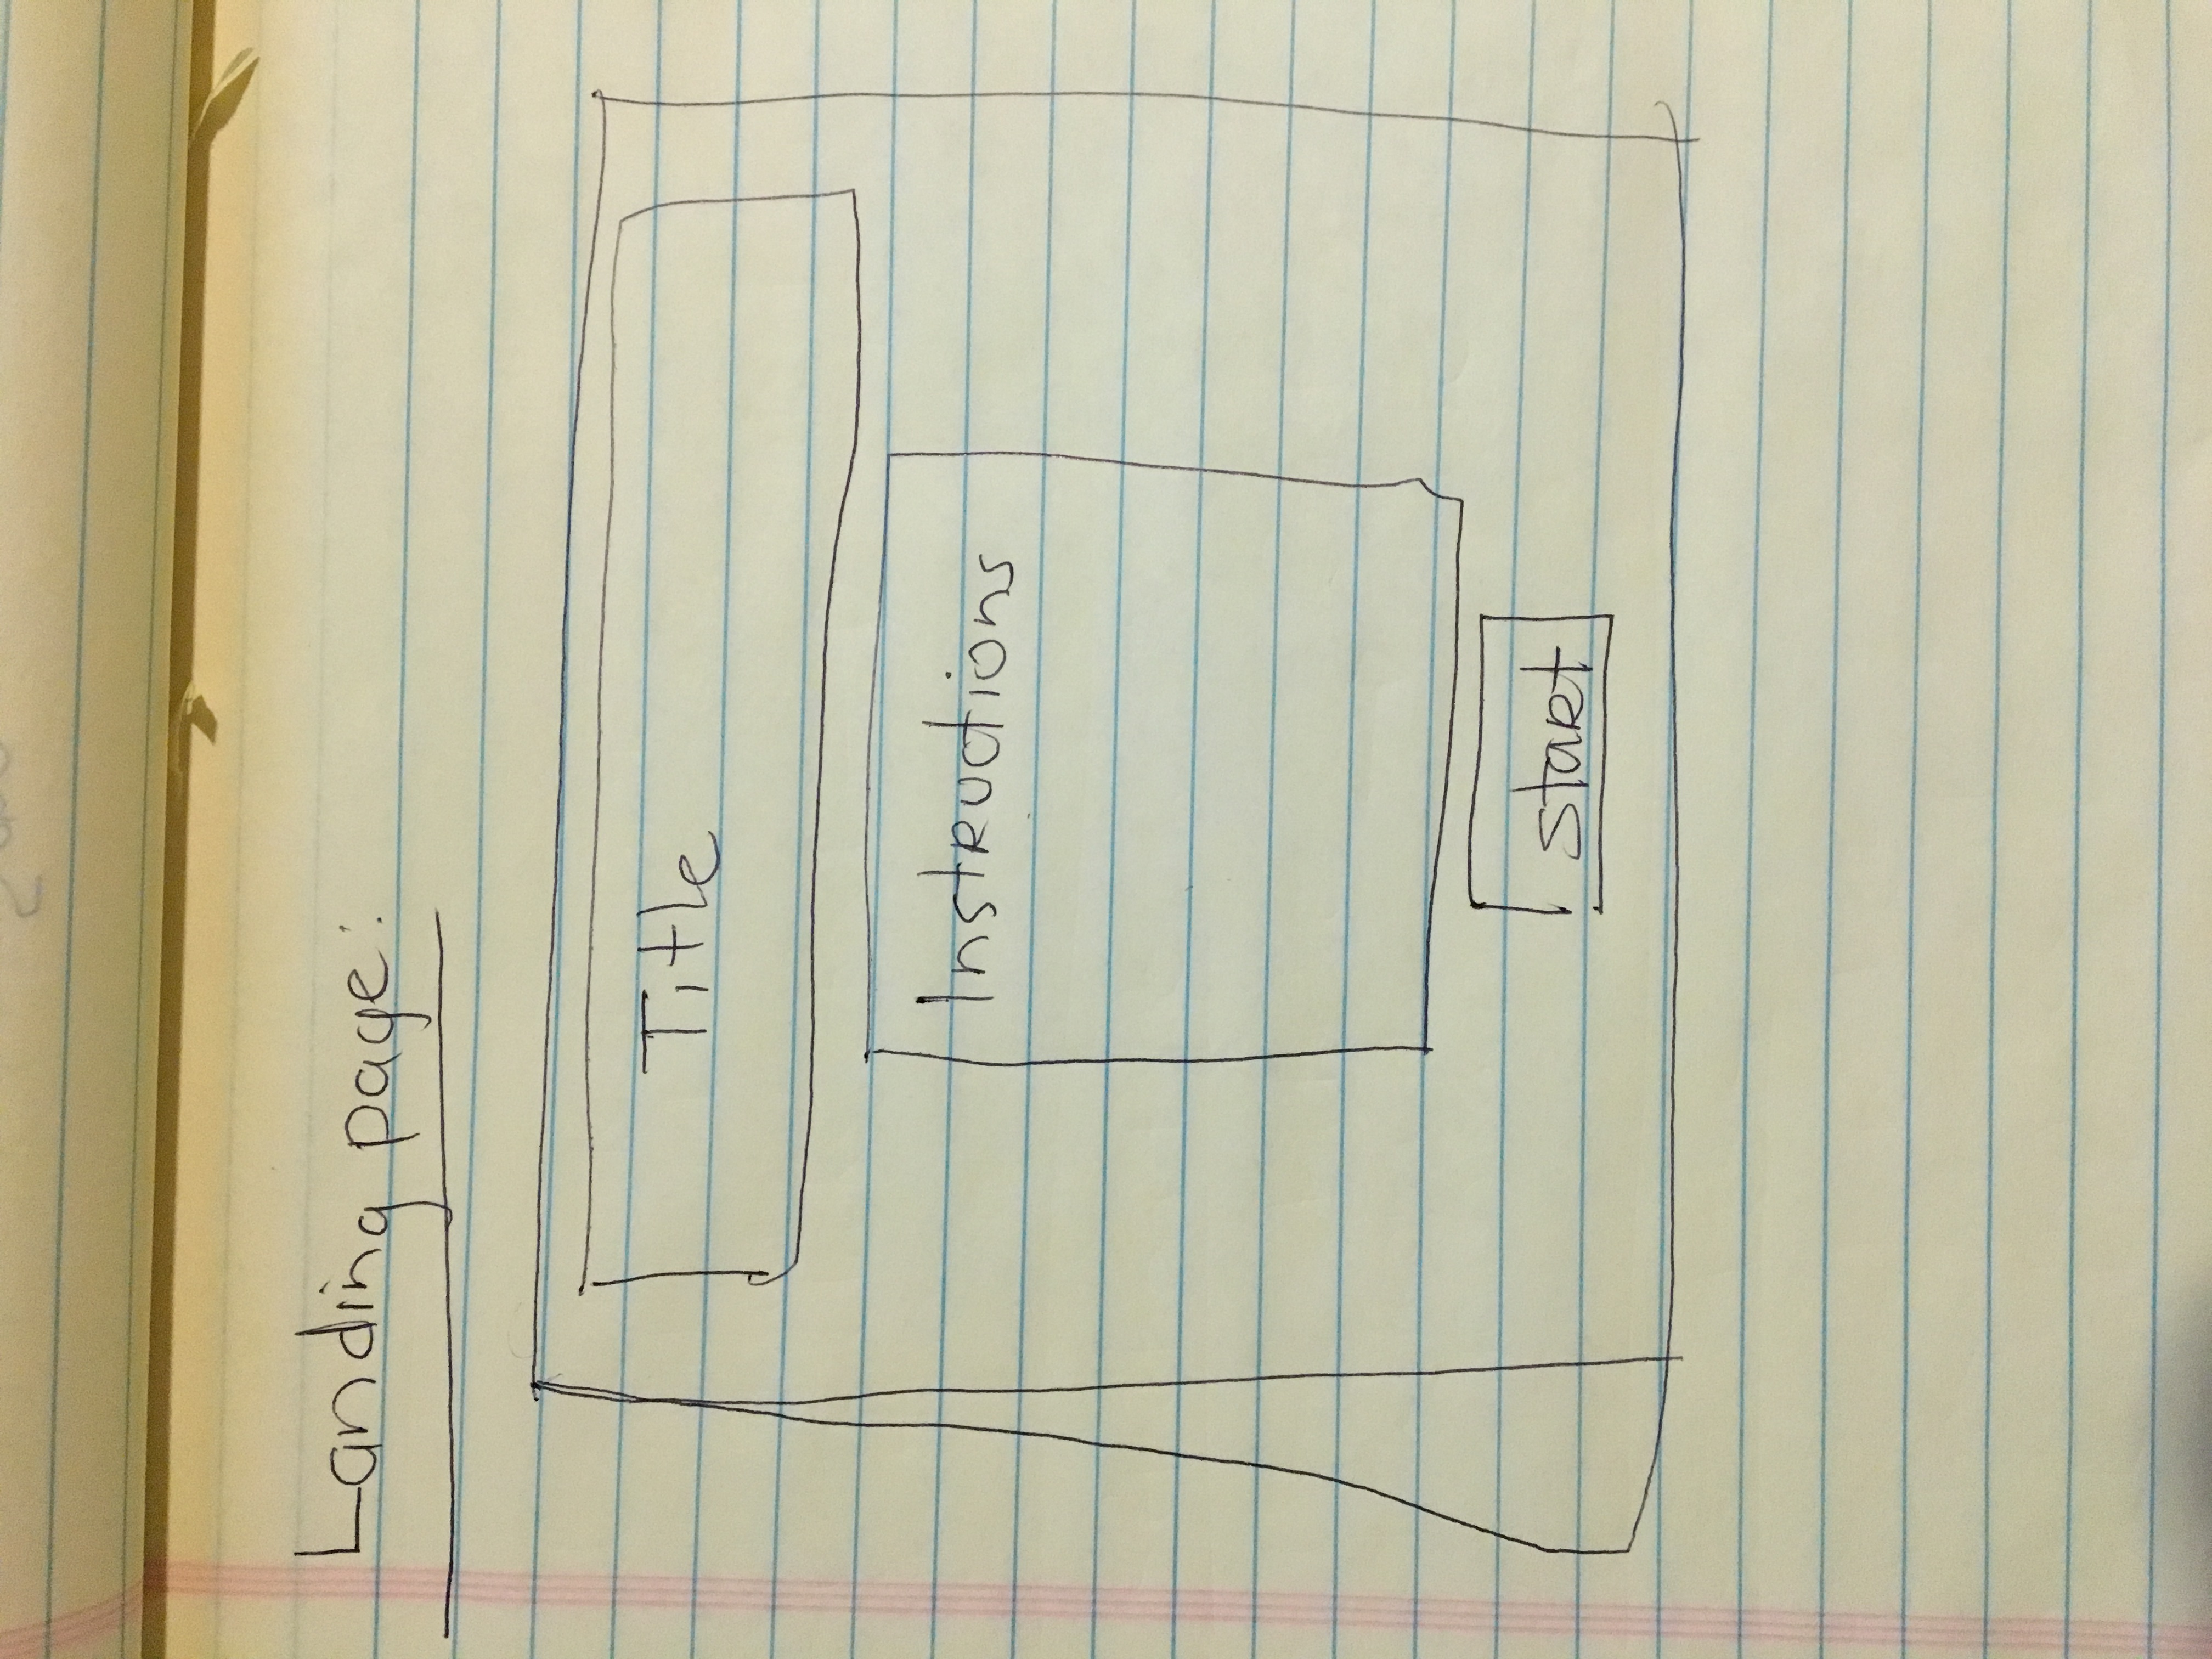 Landing page:
Title
Instructions
start